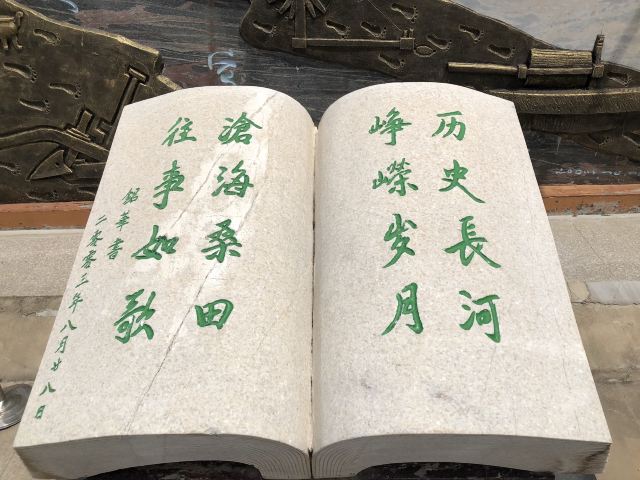 历史長河
峥嵘岁月
滄海桑田
往事如歌
銘華書
二零零三年八月廿八日